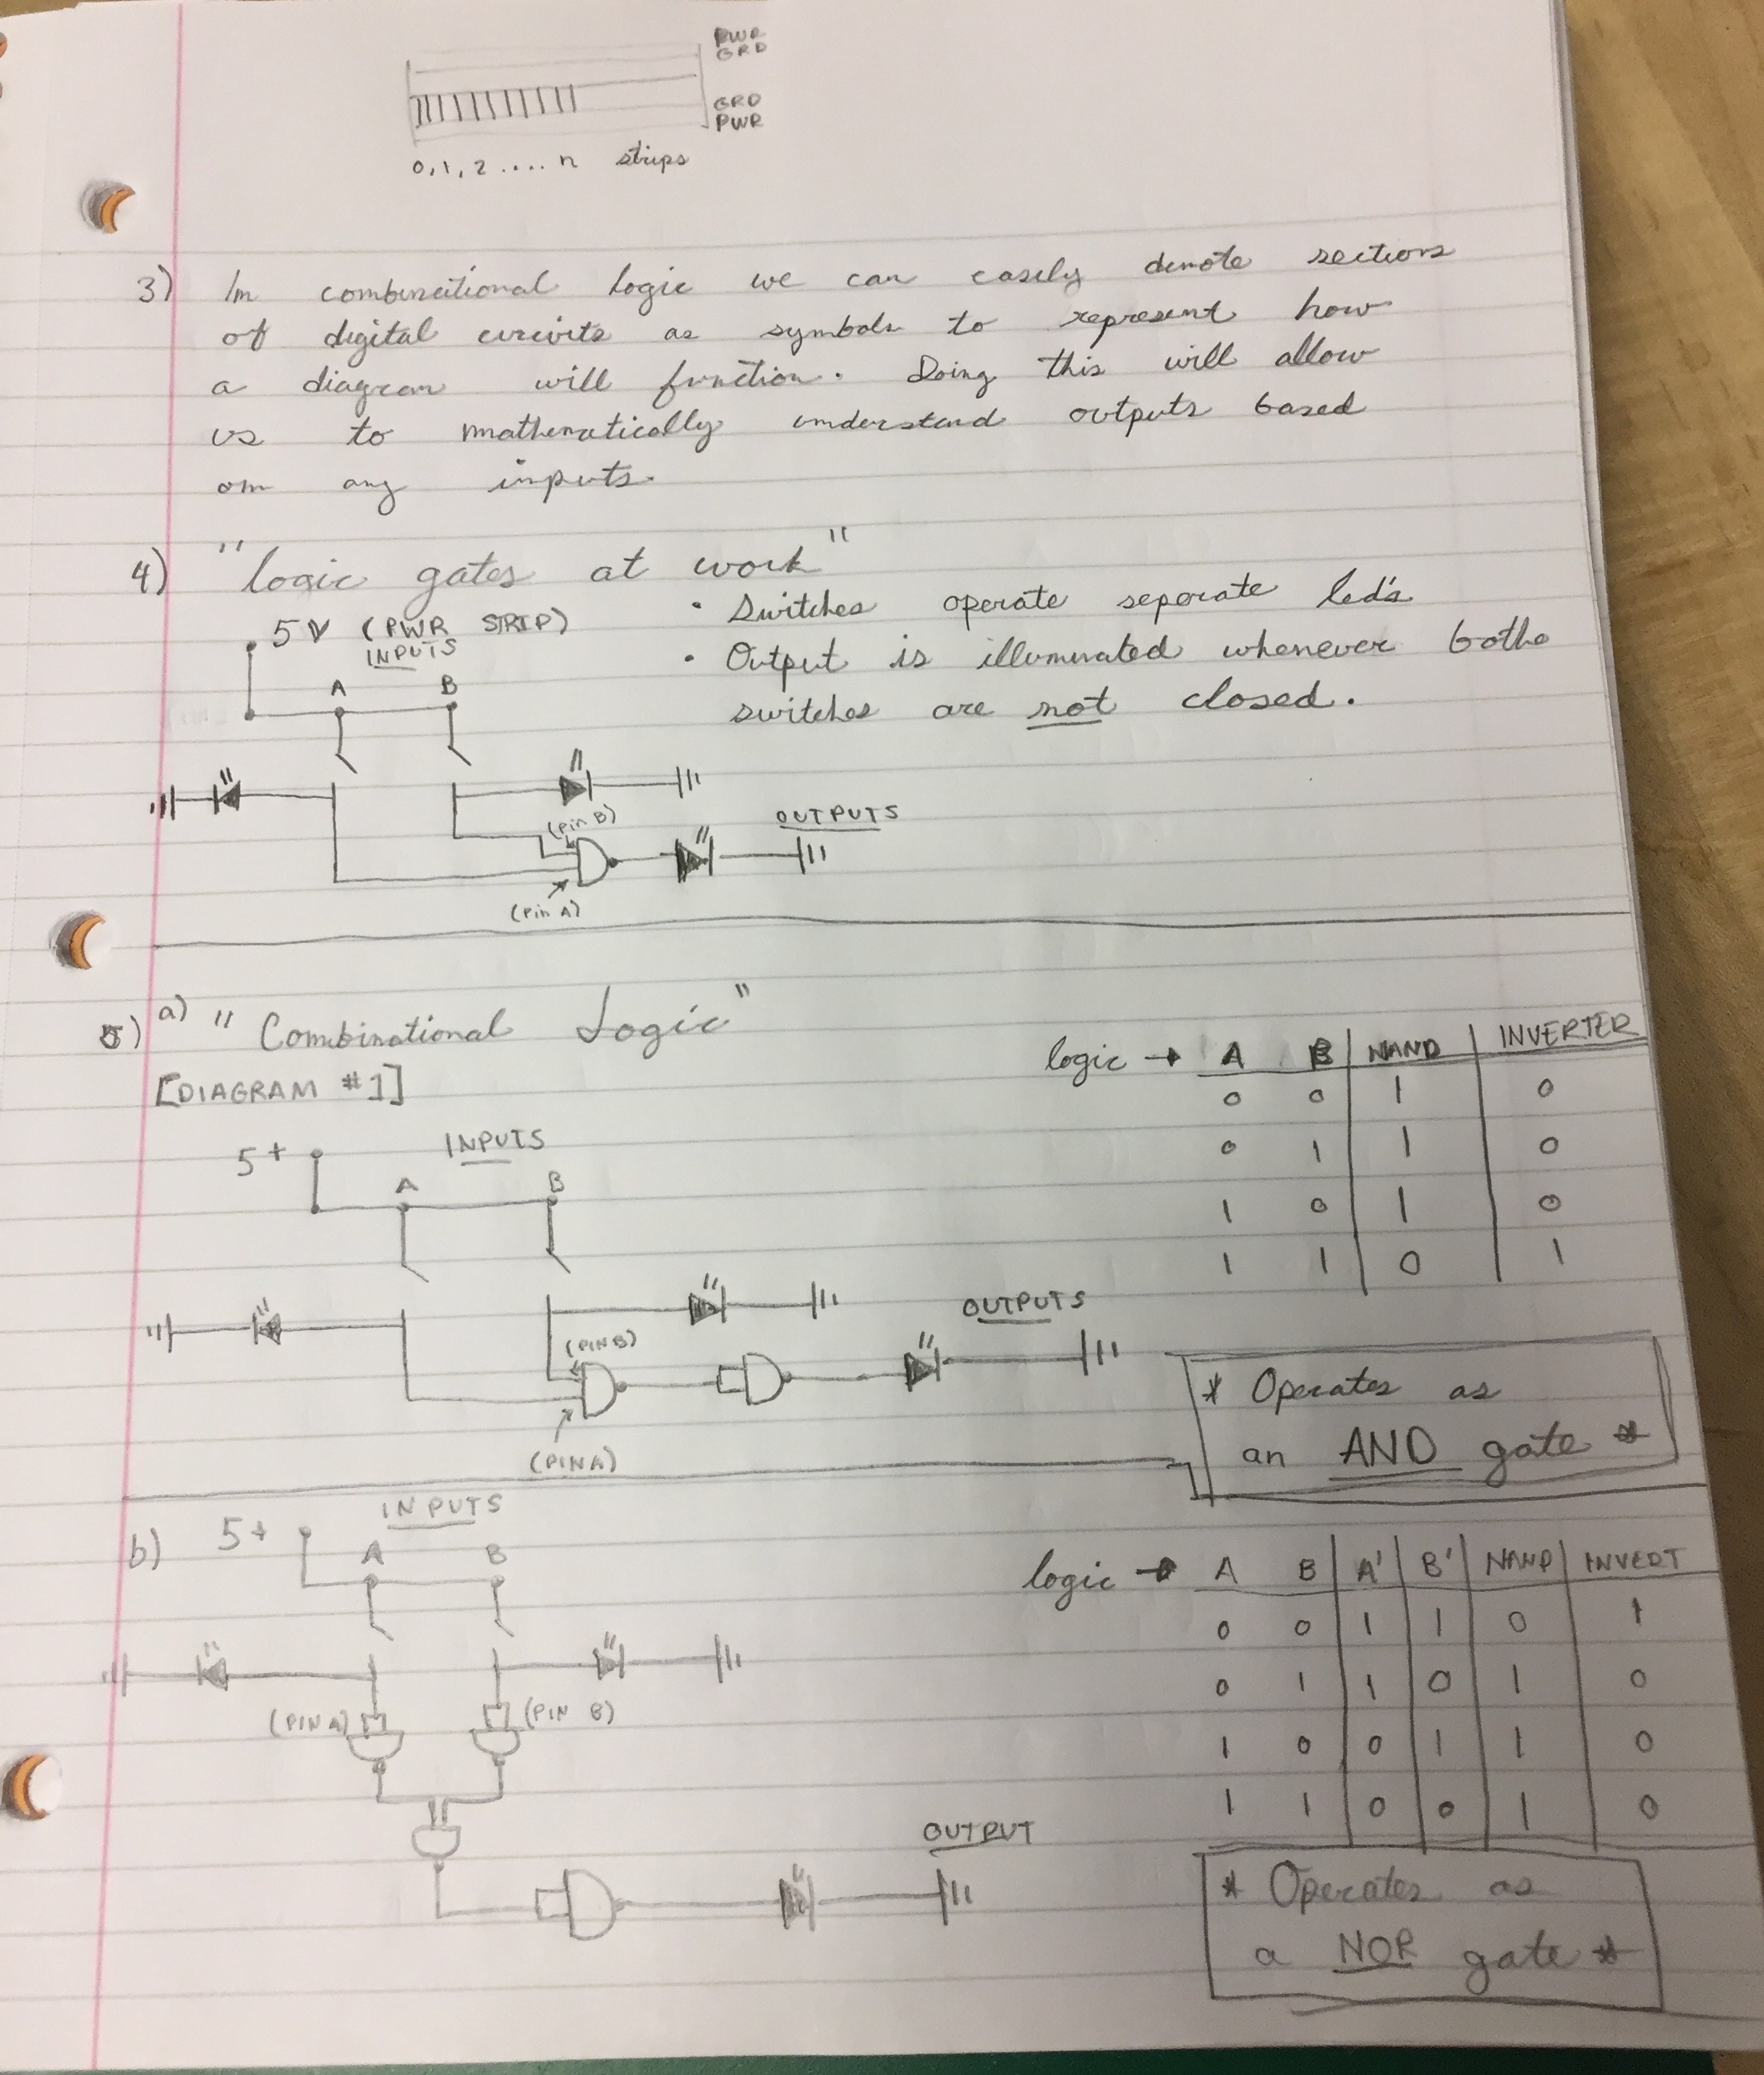 PWR
GRD
GRD
PWR
0, 1, 2 .... n strips
3) In combinational logic we can easily denote sections
of digital circuits as symbols to represent how
a diagram will function. Doing this will allow
us to mathematically understand outputs based
on any inputs.
4) "logic gates at work"
5V (PWR STRIP)
INPUTS
A B
• Switches operate seperate led's
• Output is illuminated whenever bothe
switches are not closed.
(Pin B)
OUTPUTS
(Pin A)
5) a) "Combinational Logic"
[DIAGRAM #1]
logic → A B NAND INVERTER
0 0 1 0
0 1 1 0
1 0 1 0
1 1 0 1
5+ INPUTS
A B
(PIN B)
OUTPUTS
(PIN A)
* Operates as
an AND gate *
b) 5+ INPUTS
A B
(PIN A) (PIN B)
OUTPUT
logic → A B A' B' NAND INVERT
0 0 1 1 0 1
0 1 1 0 1 0
1 0 0 1 1 0
1 1 0 0 1 0
* Operates as
a NOR gate *